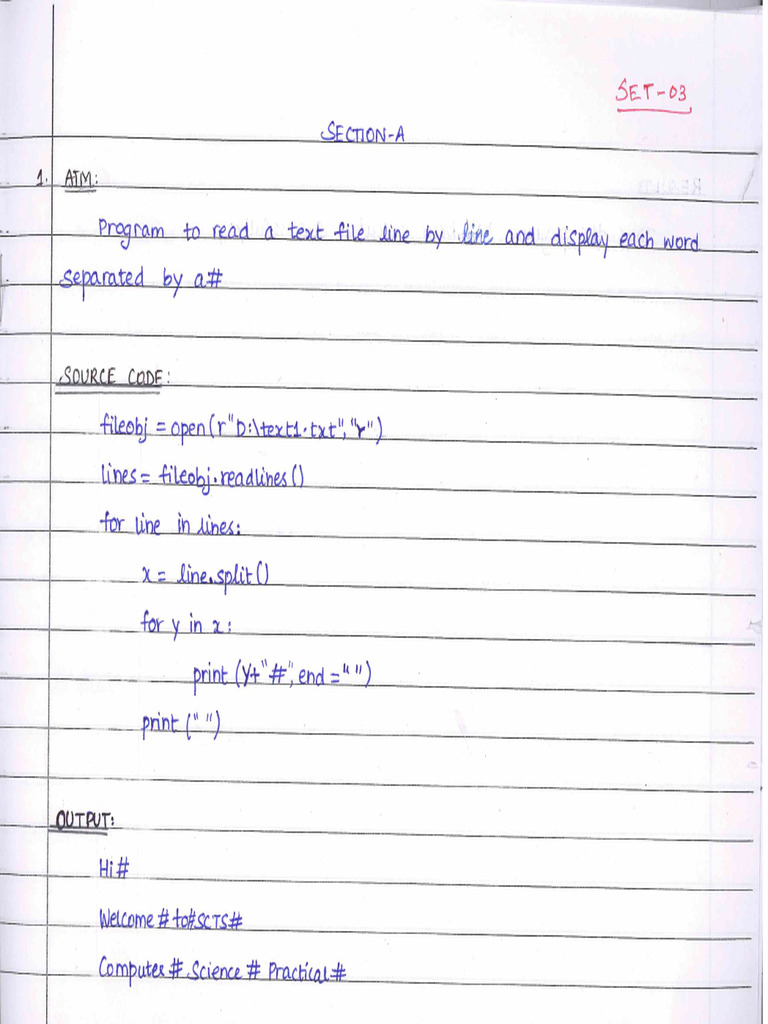 SET-03
SECTION-A
1. AIM:
Program to read a text file line by line and display each word
separated by a#
SOURCE CODE:
fileobj = open(r"D:\text1.txt","r")
lines = fileobj.readlines()
for line in lines:
x = line.split()
for y in x:
print (y+"#", end = "")
print (" ")
OUTPUT:
Hi#
Welcome # to#SCTS#
Computer # Science # Practical #